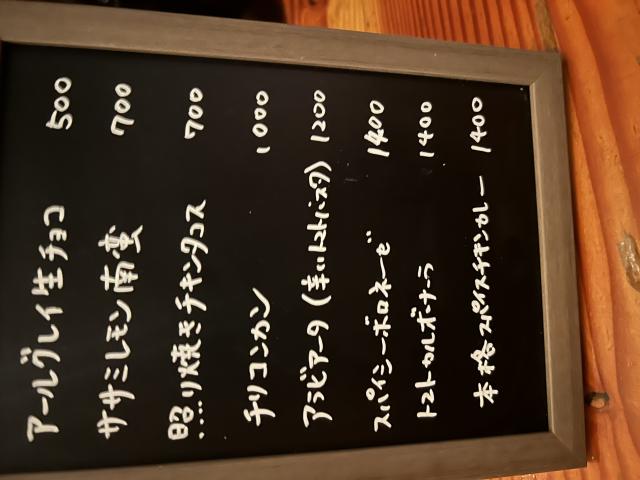 アールグレイ生チョコ 500
ササミレモン南蛮 700
照り焼きチキンタコス 700
チリコンカン 1000
アラビアータ (辛いトマトパスタ) 1200
スパイシーボロネーゼ 1400
トマトカルボナーラ 1400
本格スパイスチキンカレー 1400